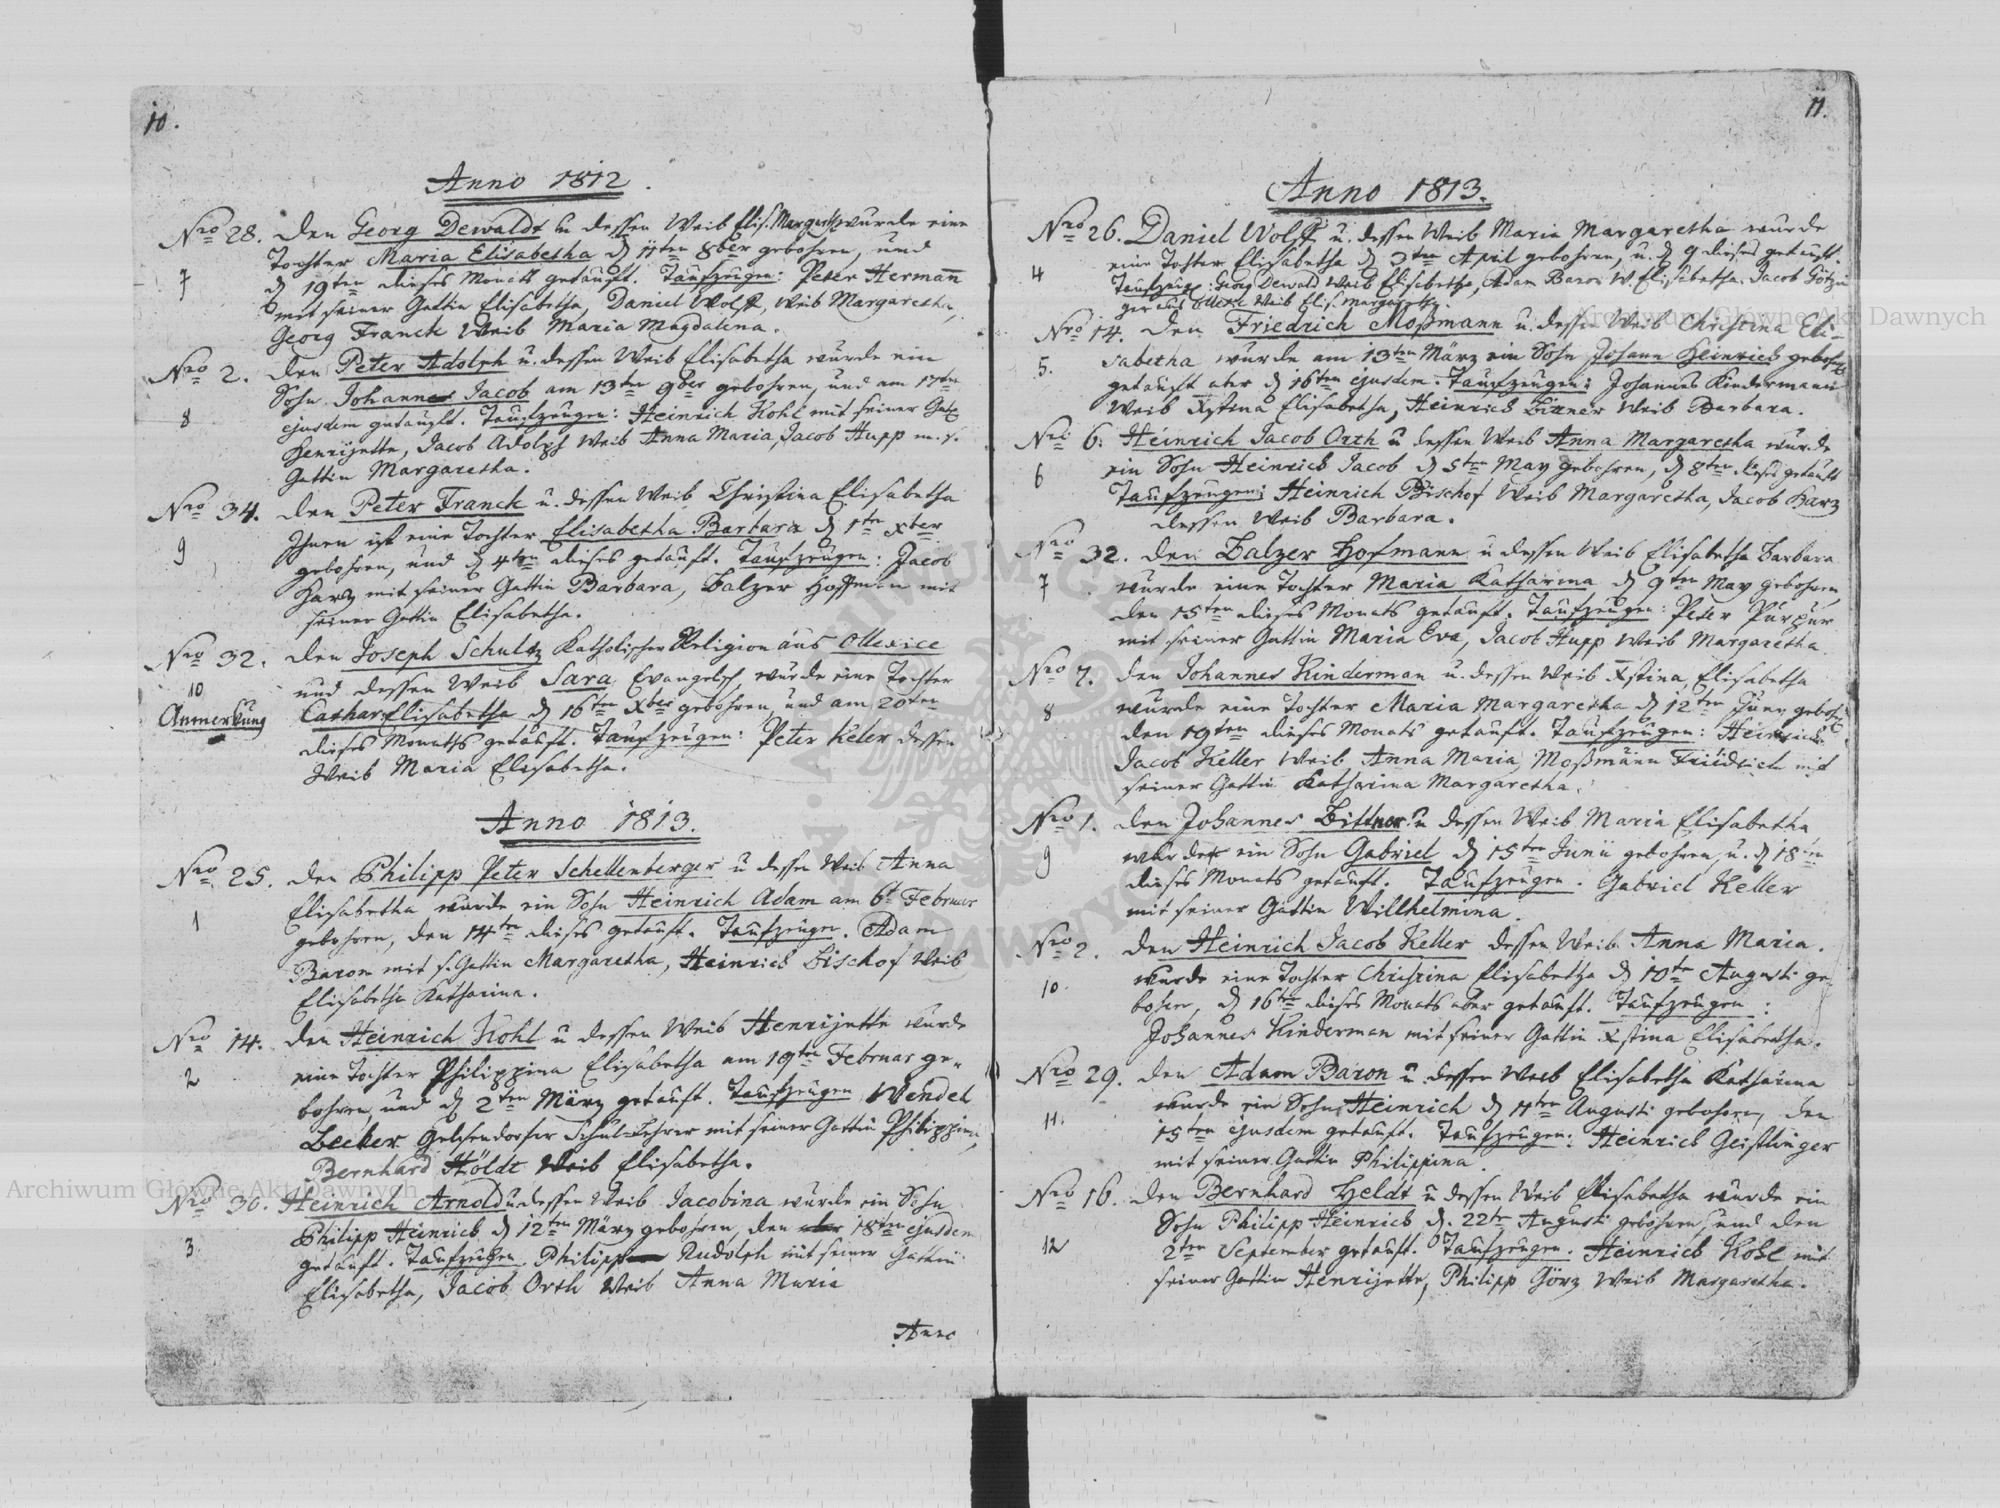 10.
Anno 1812.
Nro 28. den Georg Dewaldt u dessen Weib Elis. Margareth wurde eine
Tochter Maria Elisabetha d 11ten 8ber gebohren, und
7 d 19ten dieses Monats getauft. Taufzeugen: Peter Hermann
mit seiner Gattin Elisabetha, Daniel Wolff, Weib Margaretha,
Georg Franck Weib Maria Magdalena.
Nro 2. den Peter Adolph u. dessen Weib Elisabetha wurde ein
Sohn Johannes Jacob am 13ten 9ber gebohren, und am 17ten
8 ejusdem getauft. Taufzeugen: Heinrich Kohl mit seiner Gattin
Henrijette, Jacob Adolph Weib Anna Maria, Jacob Hupp m. s.
Gattin Margaretha.
Nro 34. den Peter Franck u. dessen Weib Christina Elisabetha
9 Ihnen ist eine Tochter Elisabetha Barbara d 1ten Xber
gebohren, und d 4ten dieses getauft. Taufzeugen: Jacob
Harz mit seiner Gattin Barbara, Balzer Hoffman mit
seiner Gattin Elisabetha.
Nro 32. den Joseph Schultz Katholischer Religion aus Ollexice
10 und dessen Weib Sara, Evangelisch, wurde eine Tochter
Anmerkung Cathar Elisabetha d 16ten Xber gebohren, und am 20ten
dieses Monaths getauft. Taufzeugen: Peter Keler dessen
Weib Maria Elisabetha.
Anno 1813.
Nro 25. den Philipp Peter Schellenberger u dessen Weib Anna
Elisabetha wurde ein Sohn Heinrich Adam am 6t Februar
1 gebohren, den 14ten dieses getauft. Taufzeugen. Adam
Baron mit s. Gattin Margaretha, Heinrich Bischof Weib
Elisabetha Katharina.
Nro 14. den Heinrich Kohl u dessen Weib Henrijette wurde
2 eine Tochter Philippina Elisabetha am 19ten Februar ge-
bohren, und d 2ten März getauft. Taufzeugen Wendel
Becker Gelsendorfer Schul-Lehrer mit seiner Gattin Philippina,
Bernhard Höldt Weib Elisabetha.
Nro 36. Heinrich Arnold u dessen Weib Jacobina wurde ein Sohn
Philipp Heinrich d 12ten März gebohren, den 18ten ejusdem
3 getauft. Taufzeugen Philipp Rudolph mit seiner Gattin
Elisabetha, Jacob Orth Weib Anna Maria
Anno
11.
Anno 1813.
Nro 26. Daniel Wolff u. dessen Weib Maria Margaretha wurde
4 eine Tochter Elisabetha d 3ten April gebohren, u. d 9 dieses getauft.
Taufzeug: Georg Dewald Weib Elisabetha, Adam Baron W. Elisabetha. Jacob
aus Ollexice Weib Elis. Margaretha.
Nro 14. den Friedrich Moßmann u. dessen Weib Christina Eli-
5. sabetha wurde am 13ten März ein Sohn Johann Heinrich gebohren
getauft aber d 16ten ejusdem. Taufzeugen: Johannes Kindermann
Weib Xstina Elisabetha, Heinrich Bittner Weib Barbara.
Nro 6. Heinrich Jacob Orth u dessen Weib Anna Margaretha wurde
6 ein Sohn Heinrich Jacob d 5ten May gebohren, d 8ten dieses getauft
Taufzeugen: Heinrich Bischof Weib Margaretha, Jacob Harz
dessen Weib Barbara.
Nro 32. den Balzer Hofmann u dessen Weib Elisabetha Barbara
7 wurde eine Tochter Maria Katharina d 9ten May gebohren,
den 15ten dieses Monats getauft. Taufzeugen: Peter Purpur
mit seiner Gattin Maria Eva, Jacob Hupp Weib Margaretha.
Nro 7. den Johannes Kinderman u. dessen Weib Xstina Elisabetha
8 wurde eine Tochter Maria Margaretha d 12ten Juny gebohren
den 19ten dieses Monats getauft. Taufzeugen: Heinrich
Jacob Keller Weib Anna Maria, Moßmann Friedrich mit
seiner Gattin Katharina Margaretha.
Nro 1. den Johannes Bittner u dessen Weib Maria Elisabetha
9 wurde ein Sohn Gabriel d 15ten Junii gebohren, u. d 18ten
dieses Monats getauft. Taufzeugen. Gabriel Keller
mit seiner Gattin Willhelmina.
Nro 2. den Heinrich Jacob Keller dessen Weib Anna Maria.
10. wurde eine Tochter Christina Elisabetha d 10ten Augusti ge-
bohren, d 16ten dieses Monats aber getauft. Taufzeugen:
Johannes Kinderman mit seiner Gattin Xstina Elisabetha.
Nro 29. den Adam Baron u dessen Weib Elisabetha Katharina
11. wurde ein Sohn Heinrich d 11ten Augusti gebohren, den
15ten ejusdem getauft. Taufzeugen: Heinrich Geistlinger
mit seiner Gattin Philippina.
Nro 16. den Bernhard Heldt u dessen Weib Elisabetha wurde ein
Sohn Philipp Heinrich d. 22ten Augusti gebohren, und den
12 2ten September getauft. Taufzeugen. Heinrich Kohl mit
seiner Gattin Henrijette, Philipp Görz Weib Margaretha.
Archiwum Główne Akt Dawnych
Archiwum Główne Akt Dawnych